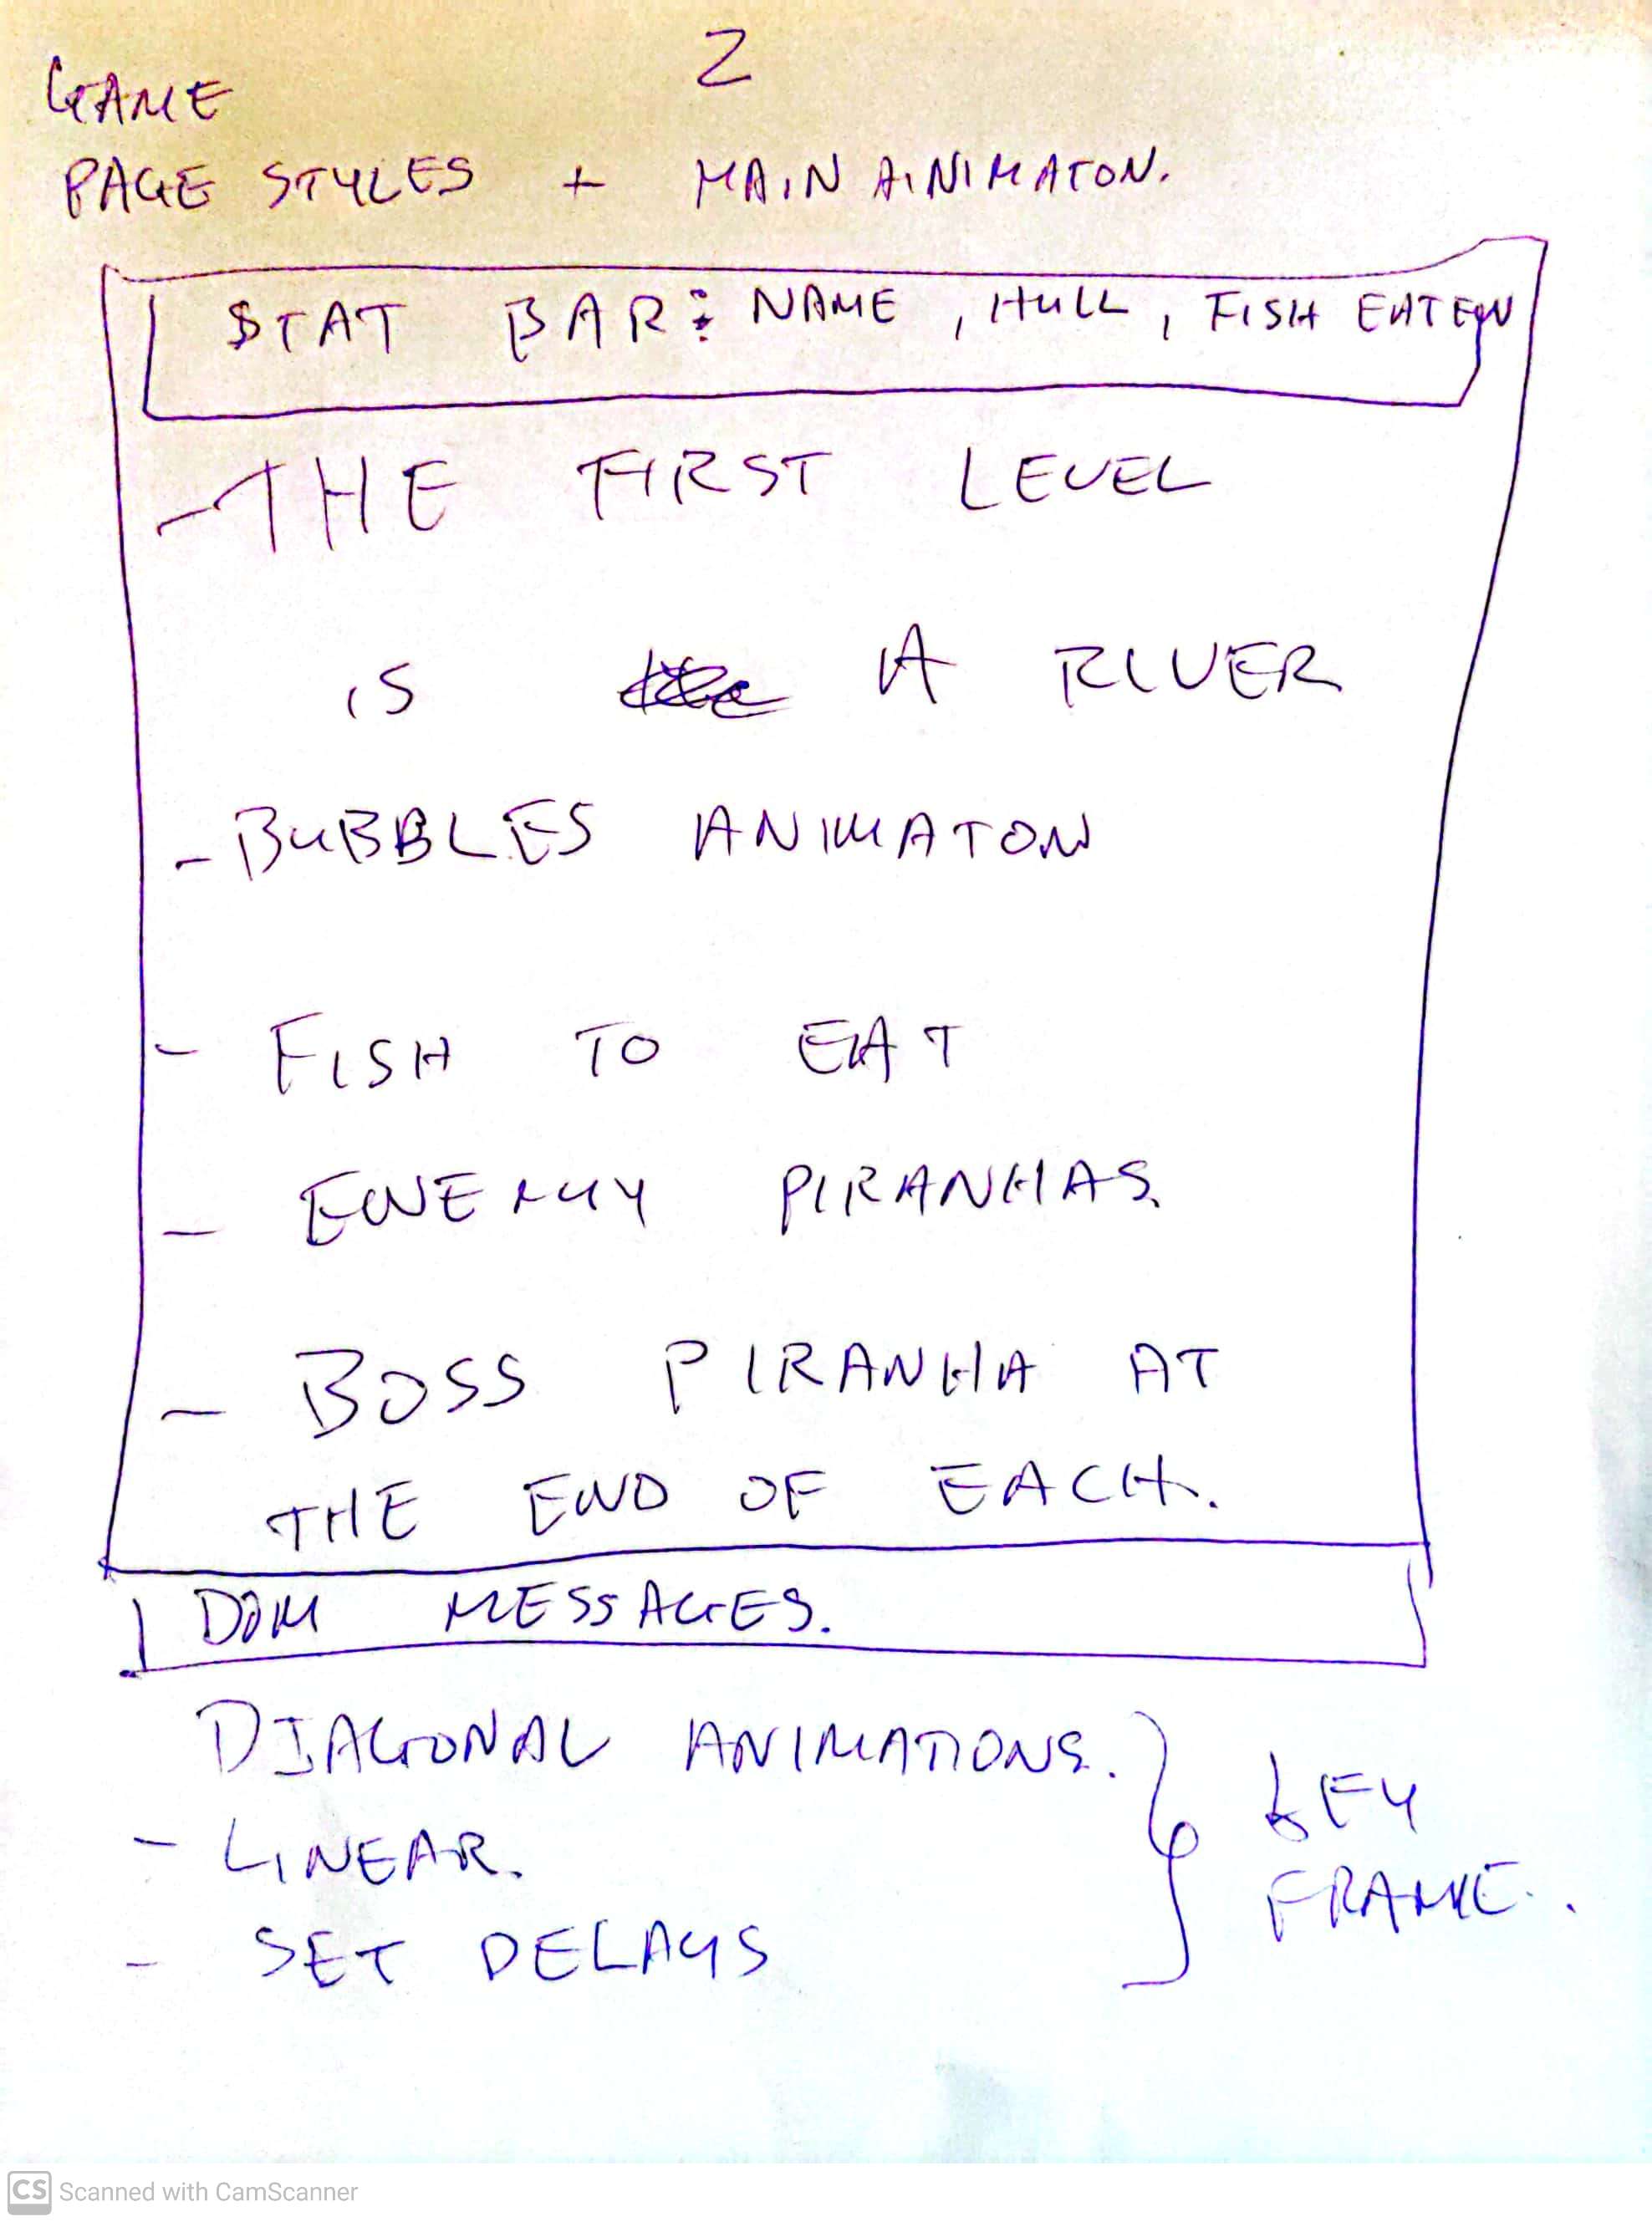 2
GAME
PAGE STYLES + MAIN AINIMATON.
STAT BAR: NAME, HULL, FISH EATEN
- THE FIRST LEVEL
IS A RIVER
- BUBBLES ANIMATON
- FISH TO EAT
- ENEMY PIRANHAS.
- BOSS PIRANHA AT
THE END OF EACH.
DOM MESSAGES.
DIAGONAL ANIMATIONS.
- LINEAR.
- SET DELAYS
KEY
FRAME.
CS Scanned with CamScanner